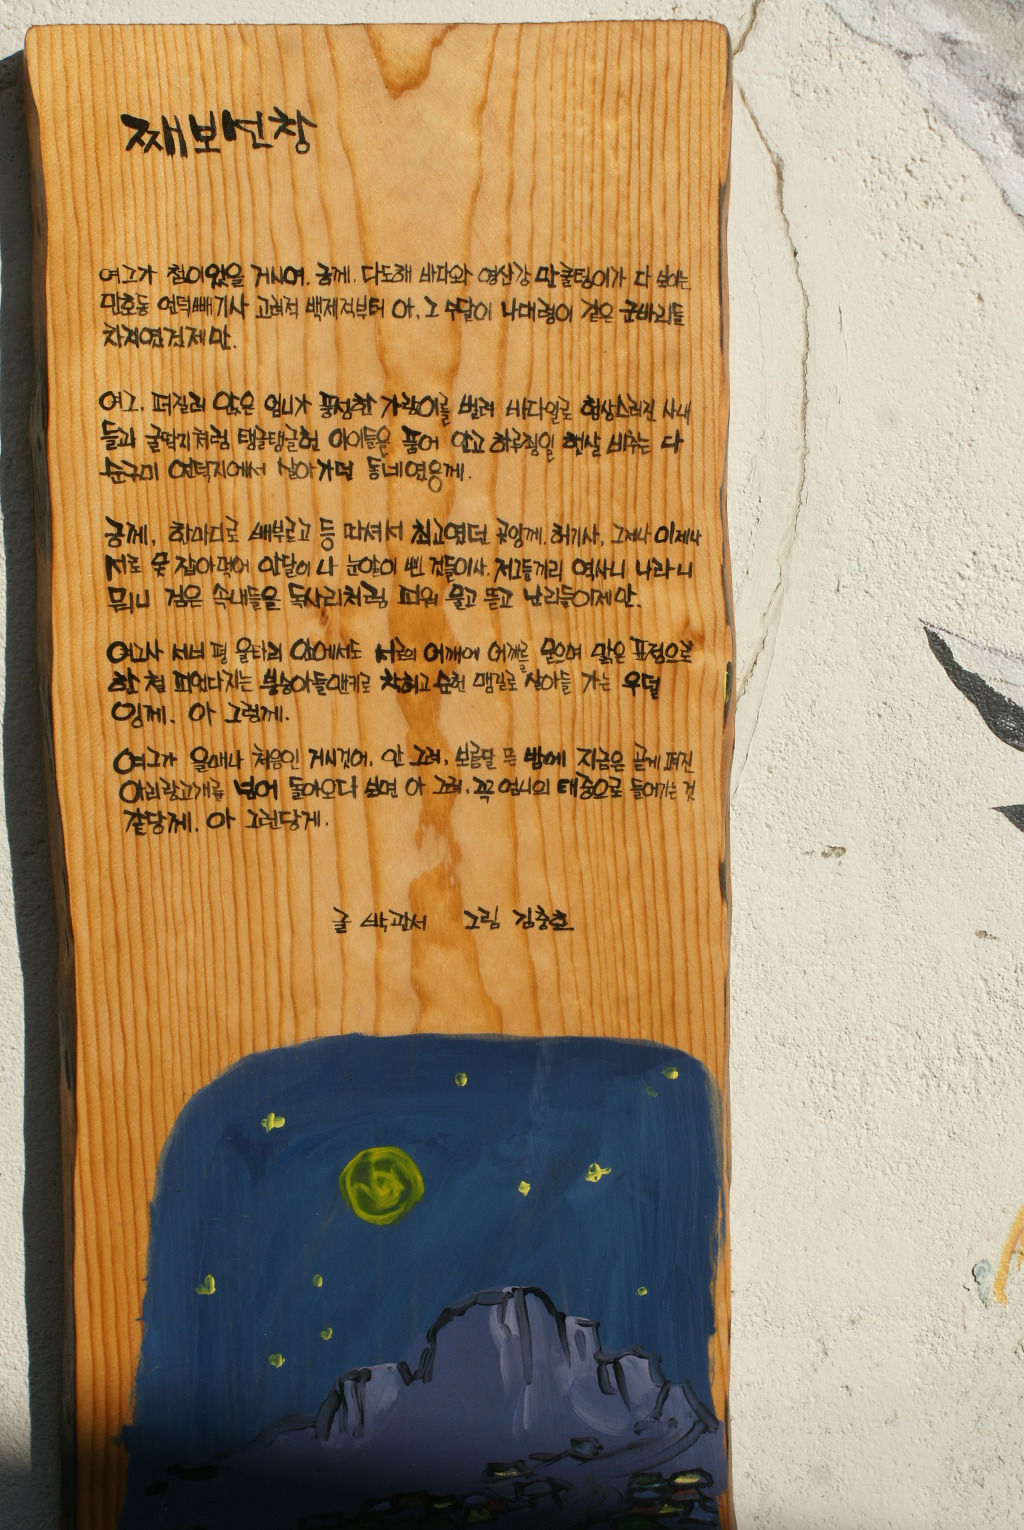 째보선창
여그가 첨이었을 거시여. 긍께. 다도해 바다와 영산강 만쿨팅이가 다 보이는
만호동 언덕빼기사 고려적 백제적부터 아, 그 수달이 나대령이 같은 군바리들
차지였겄제만.
여그. 퍼질러 앉은 엄니가 풍성한 가랑이를 벌려 바다일로 험상스러진 사내
들과 굴딱지처럼 탱글탱글헌 아이들을 품어 안고 하루종일 햇살 비추는 다
순구미 언덕지에서 살아가던 동네였응께.
긍께, 한마디로 배부르고 등 따셔서 최고였던 곳잉께. 허기사, 그제나 이제나
서로 못 잡아먹어 안달이 나 눈알이 삔 것들이사. 저그들끼리 역사니 나라니
뭐니 검은 속내들을 독사리처럼 피워 물고 뜯고 난리들이제만.
여그사 서너 평 울타리 안에서도 서로의 어깨에 어깨를 묻으며 맑은 표정으로
한 철 피었다지는 봉숭아들맨키로 착허고 순헌 맴길로 살아들 가는 우덜
잉께. 아 그렇께.
여그가 을매나 처음인 거시것어. 안 그려, 보름달 뜬 밤에 지금은 곧게 펴진
아리랑고개를 넘어 돌아오다 보면 아 그려. 꼭 엄니의 태중으로 들어가는 것
같당께. 아 그런당께.
글 박관서 그림 김충호